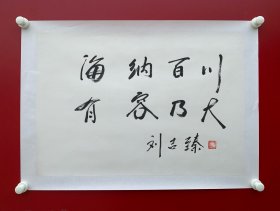 海纳百川
有容乃大
刘古臻